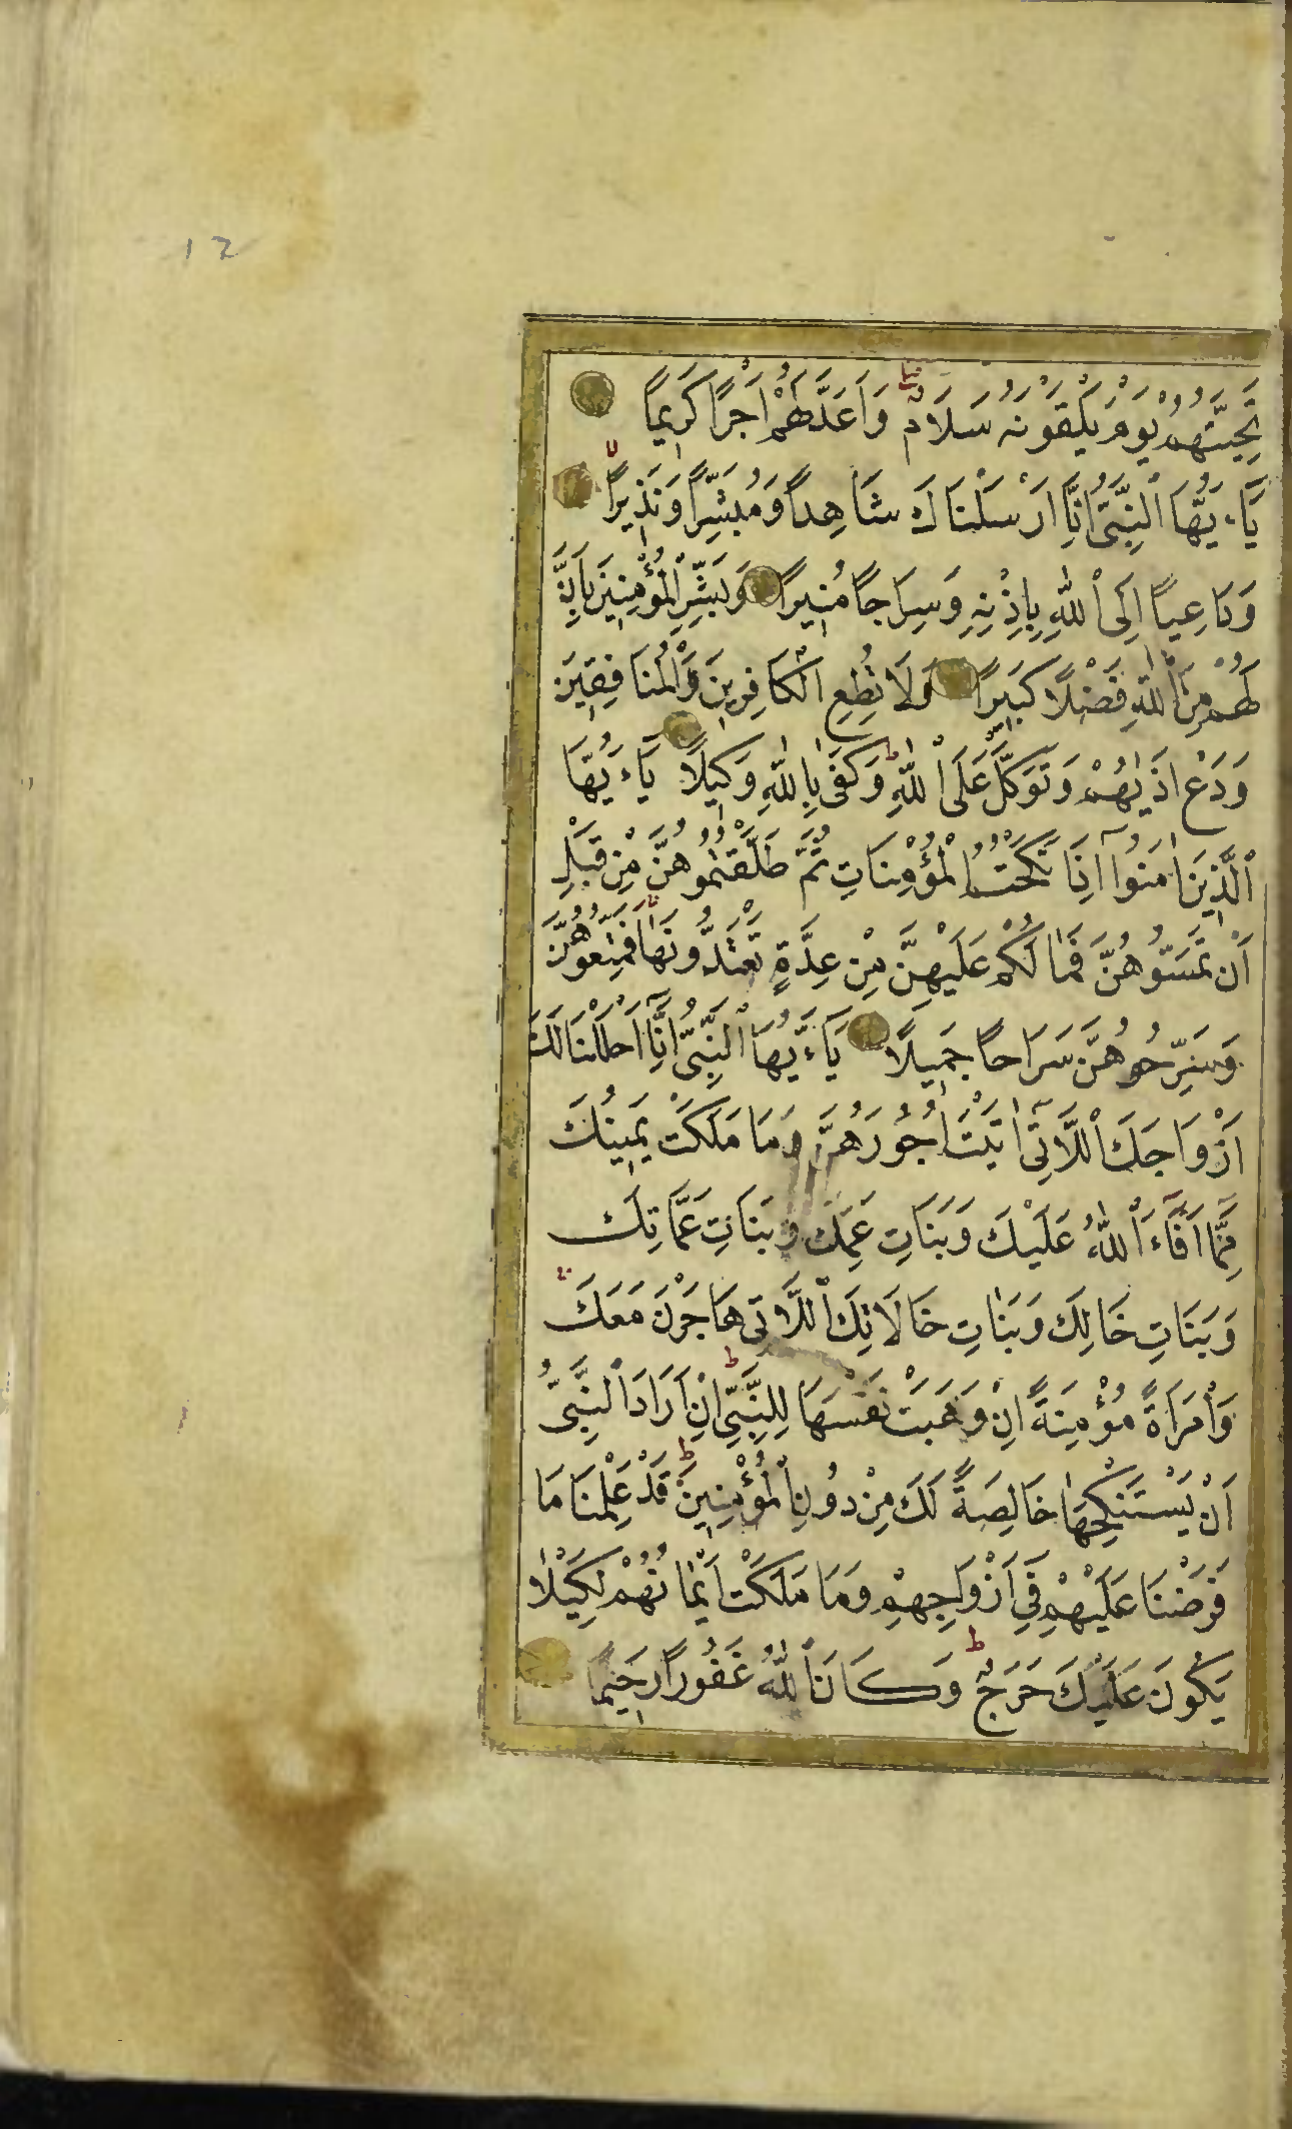 12
تَحِيَّتُهُمْ يَوْمَ يَلْقَوْنَهُ سَلَامٌ وَاَعَدَّ لَهُمْ اَجْرًا كَرِيمًا
يَاءَيُّهَا ٱلنَّبِىُّ اِنَّا اَرْسَلْنَاكَ شَاهِدًا وَمُبَشِّرًا وَنَذِيرًا
وَدَاعِيًا اِلَى ٱللّٰهِ بِاِذْنِهِ وَسِرَاجًا مُنِيرًا وَبَشِّرِ ٱلْمُؤْمِنِينَ بِاَنَّ
لَهُمْ مِنَ ٱللّٰهِ فَضْلًا كَبِيرًا وَلَا تُطِعِ ٱلْكَافِرِينَ وَٱلْمُنَافِقِينَ
وَدَعْ اَذٰيهُمْ وَتَوَكَّلْ عَلَى ٱللّٰهِ وَكَفٰى بِاللّٰهِ وَكِيلًا يَاءَيُّهَا
ٱلَّذِينَ اٰمَنُوٓا اِذَا نَكَحْتُمُ ٱلْمُؤْمِنَاتِ ثُمَّ طَلَّقْتُمُوهُنَّ مِنْ قَبْلِ
اَنْ تَمَسُّوهُنَّ فَمَا لَكُمْ عَلَيْهِنَّ مِنْ عِدَّةٍ تَعْتَدُّونَهَا فَمَتِّعُوهُنَّ
وَسَرِّحُوهُنَّ سَرَاحًا جَمِيلًا يَاءَيُّهَا ٱلنَّبِىُّ اِنَّٓا اَحْلَلْنَا لَكَ
اَزْوَاجَكَ ٱللَّاتِىٓ اٰتَيْتَ اُجُورَهُنَّ وَمَا مَلَكَتْ يَمِينُكَ
مِمَّٓا اَفَٓاءَ ٱللّٰهُ عَلَيْكَ وَبَنَاتِ عَمِّكَ وَبَنَاتِ عَمَّاتِكَ
وَبَنَاتِ خَالِكَ وَبَنَاتِ خَالَاتِكَ ٱللَّاتِى هَاجَرْنَ مَعَكَ
وَٱمْرَاَةً مُؤْمِنَةً اِنْ وَهَبَتْ نَفْسَهَا لِلنَّبِىِّ اِنْ اَرَادَ ٱلنَّبِىُّ
اَنْ يَسْتَنْكِحَهَا خَالِصَةً لَكَ مِنْ دُونِ ٱلْمُؤْمِنِينَ قَدْ عَلِمْنَا مَا
فَرَضْنَا عَلَيْهِمْ فِىٓ اَزْوَاجِهِمْ وَمَا مَلَكَتْ اَيْمَانُهُمْ لِكَيْلَا
يَكُونَ عَلَيْكَ حَرَجٌ وَكَانَ ٱللّٰهُ غَفُورًا رَحِيمًا